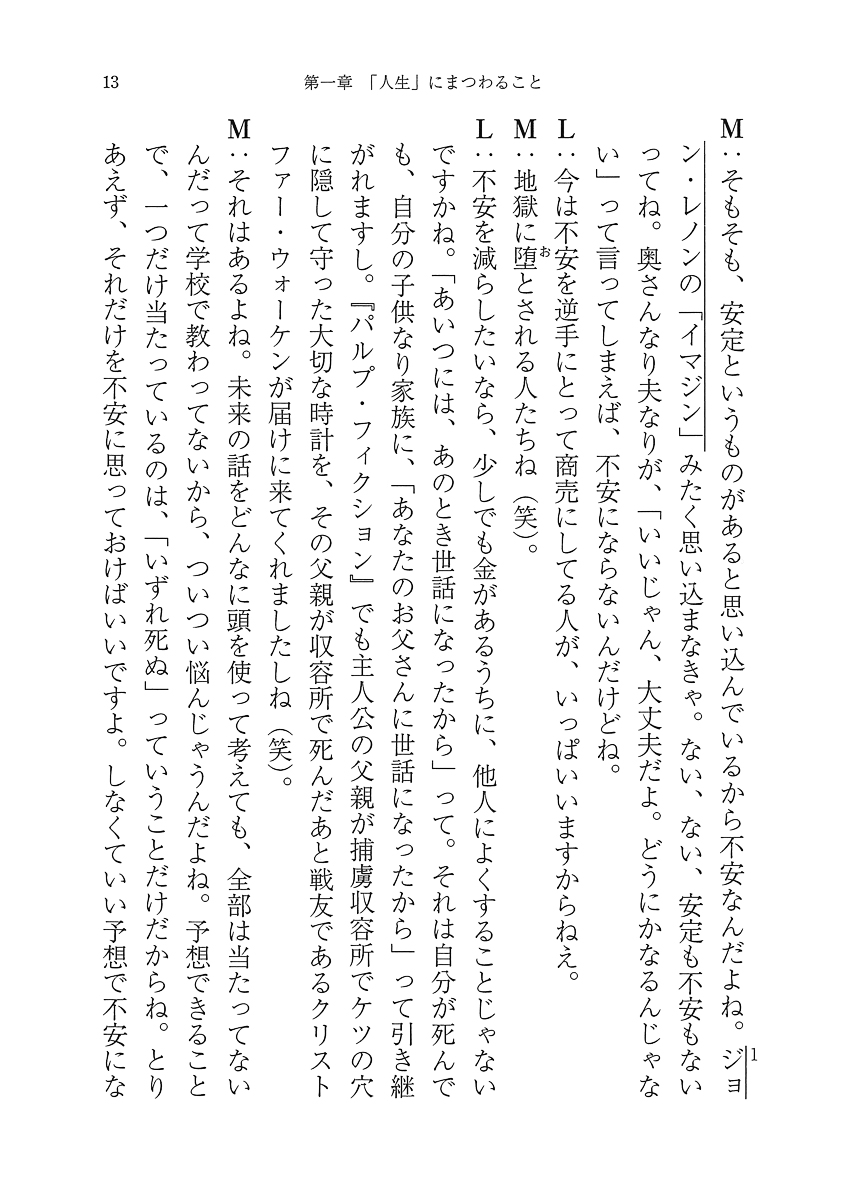 13
第一章　「人生」にまつわること
M：そもそも、安定というものがあると思い込んでいるから不安なんだよね。ジョ
1
ン・レノンの「イマジン」みたく思い込まなきゃ。ない、ない、安定も不安もない
ってね。奥さんなり夫なりが、「いいじゃん、大丈夫だよ。どうにかなるんじゃな
い」って言ってしまえば、不安にならないんだけどね。
L：今は不安を逆手にとって商売にしてる人が、いっぱいいますからねえ。
M：地獄に堕とされる人たちね（笑）。
お
L：不安を減らしたいなら、少しでも金があるうちに、他人によくすることじゃない
ですかね。「あいつには、あのとき世話になったから」って。それは自分が死んで
も、自分の子供なり家族に、「あなたのお父さんに世話になったから」って引き継
がれますし。『パルプ・フィクション』でも主人公の父親が捕虜収容所でケツの穴
に隠して守った大切な時計を、その父親が収容所で死んだあと戦友であるクリスト
ファー・ウォーケンが届けに来てくれましたしね（笑）。
M：それはあるよね。未来の話をどんなに頭を使って考えても、全部は当たってない
んだって学校で教わってないから、ついつい悩んじゃうんだよね。予想できること
で、一つだけ当たっているのは、「いずれ死ぬ」っていうことだけだからね。とり
あえず、それだけを不安に思っておけばいいですよ。しなくていい予想で不安にな